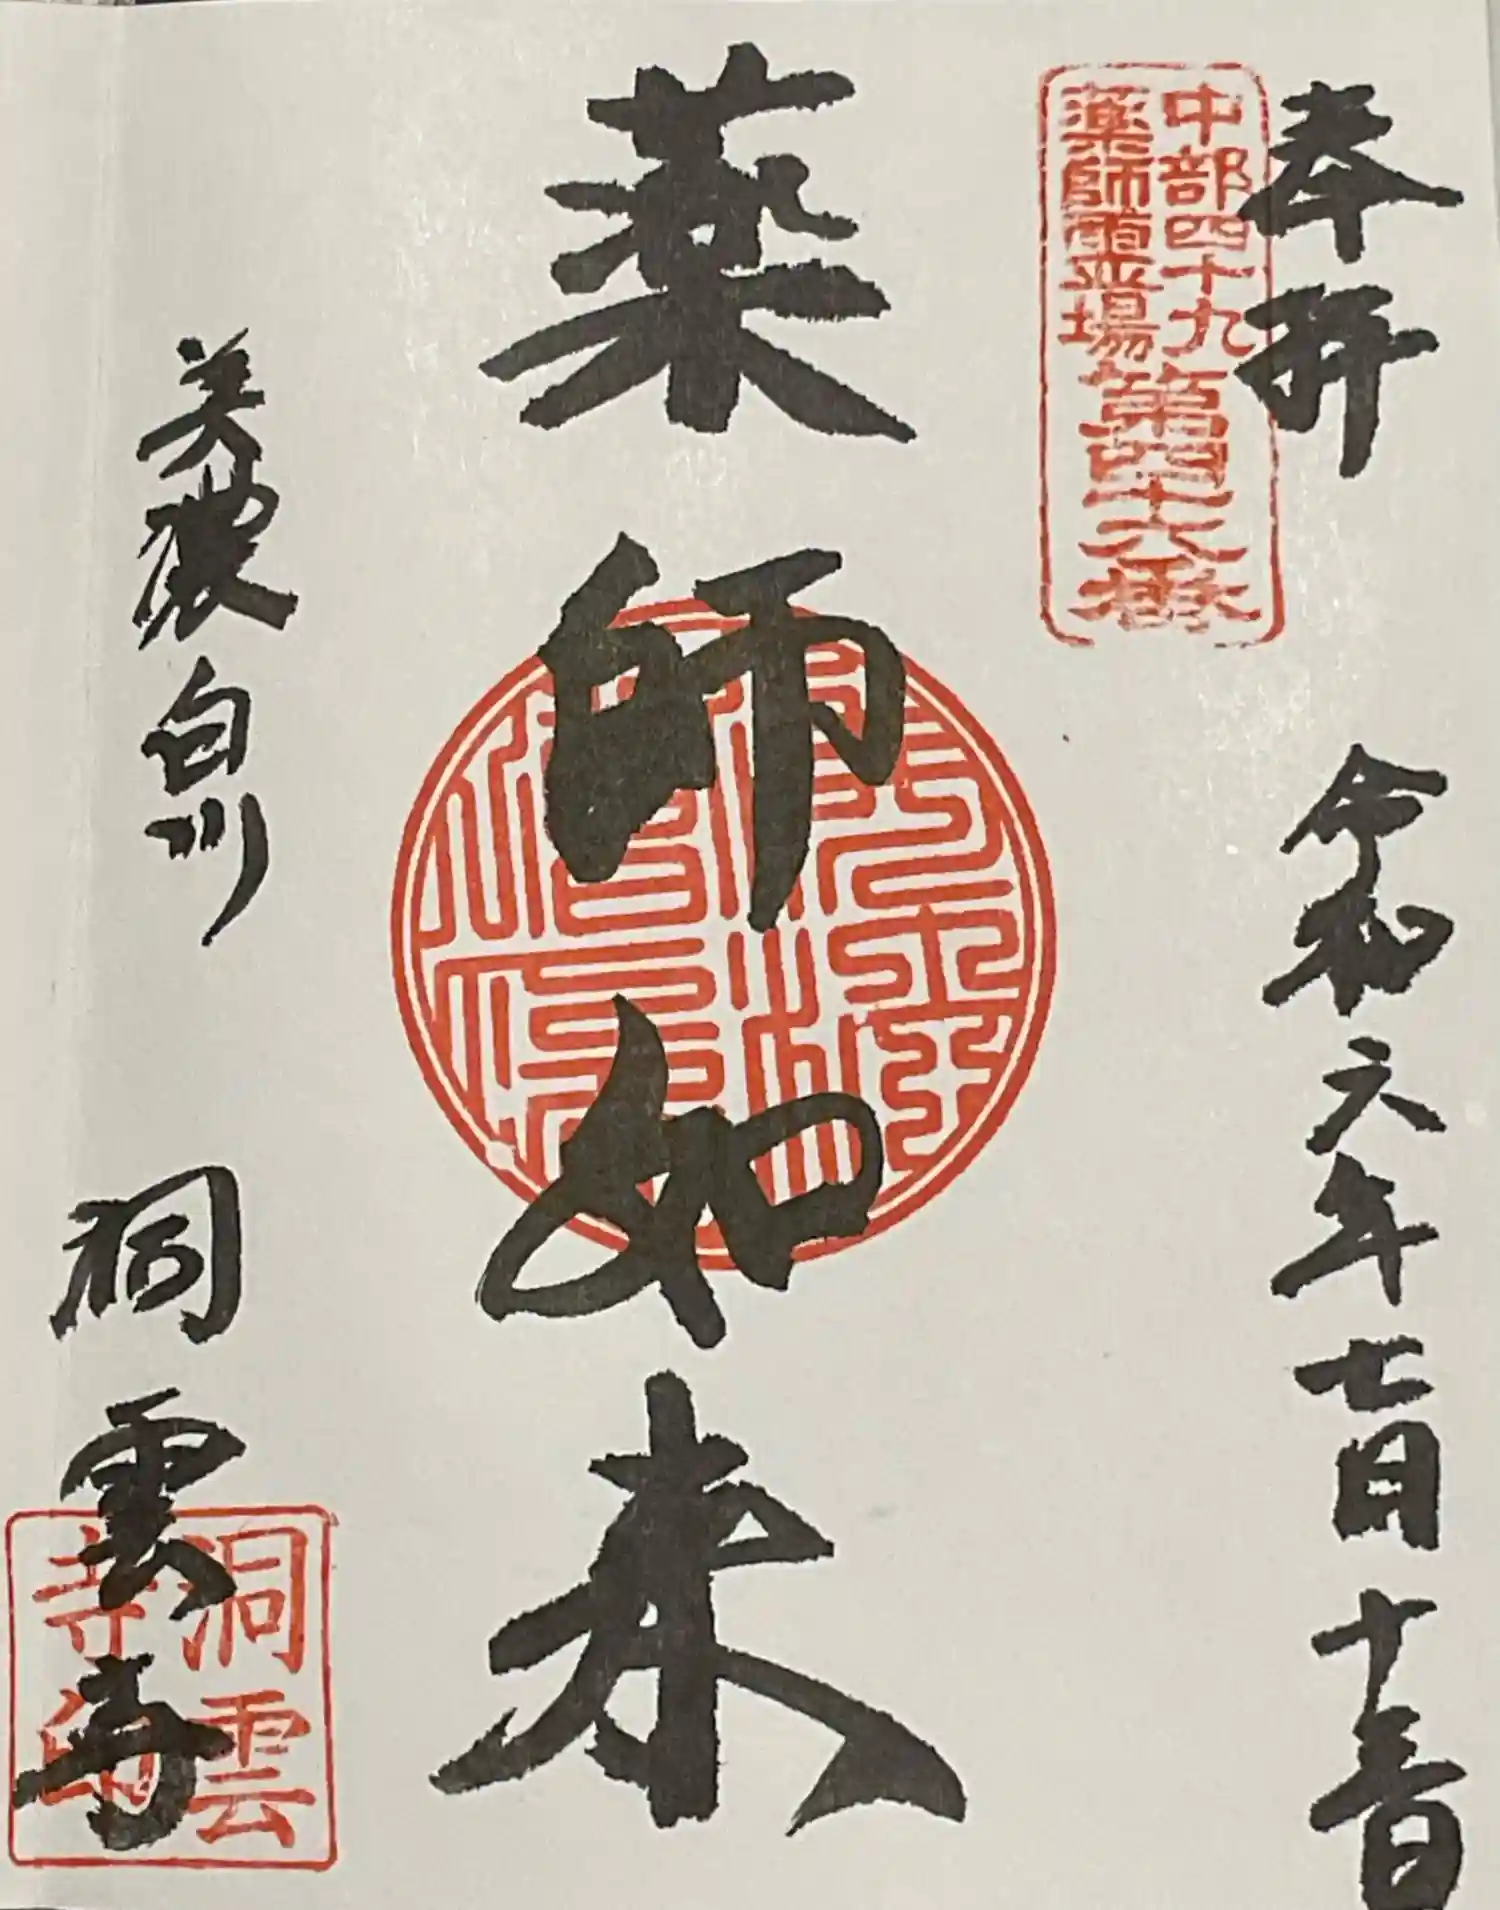 奉拝
令和六年七月十五日
中部四十九
薬師霊場
第四十六番
薬師如来
美濃白川
洞雲寺
洞雲
寺印